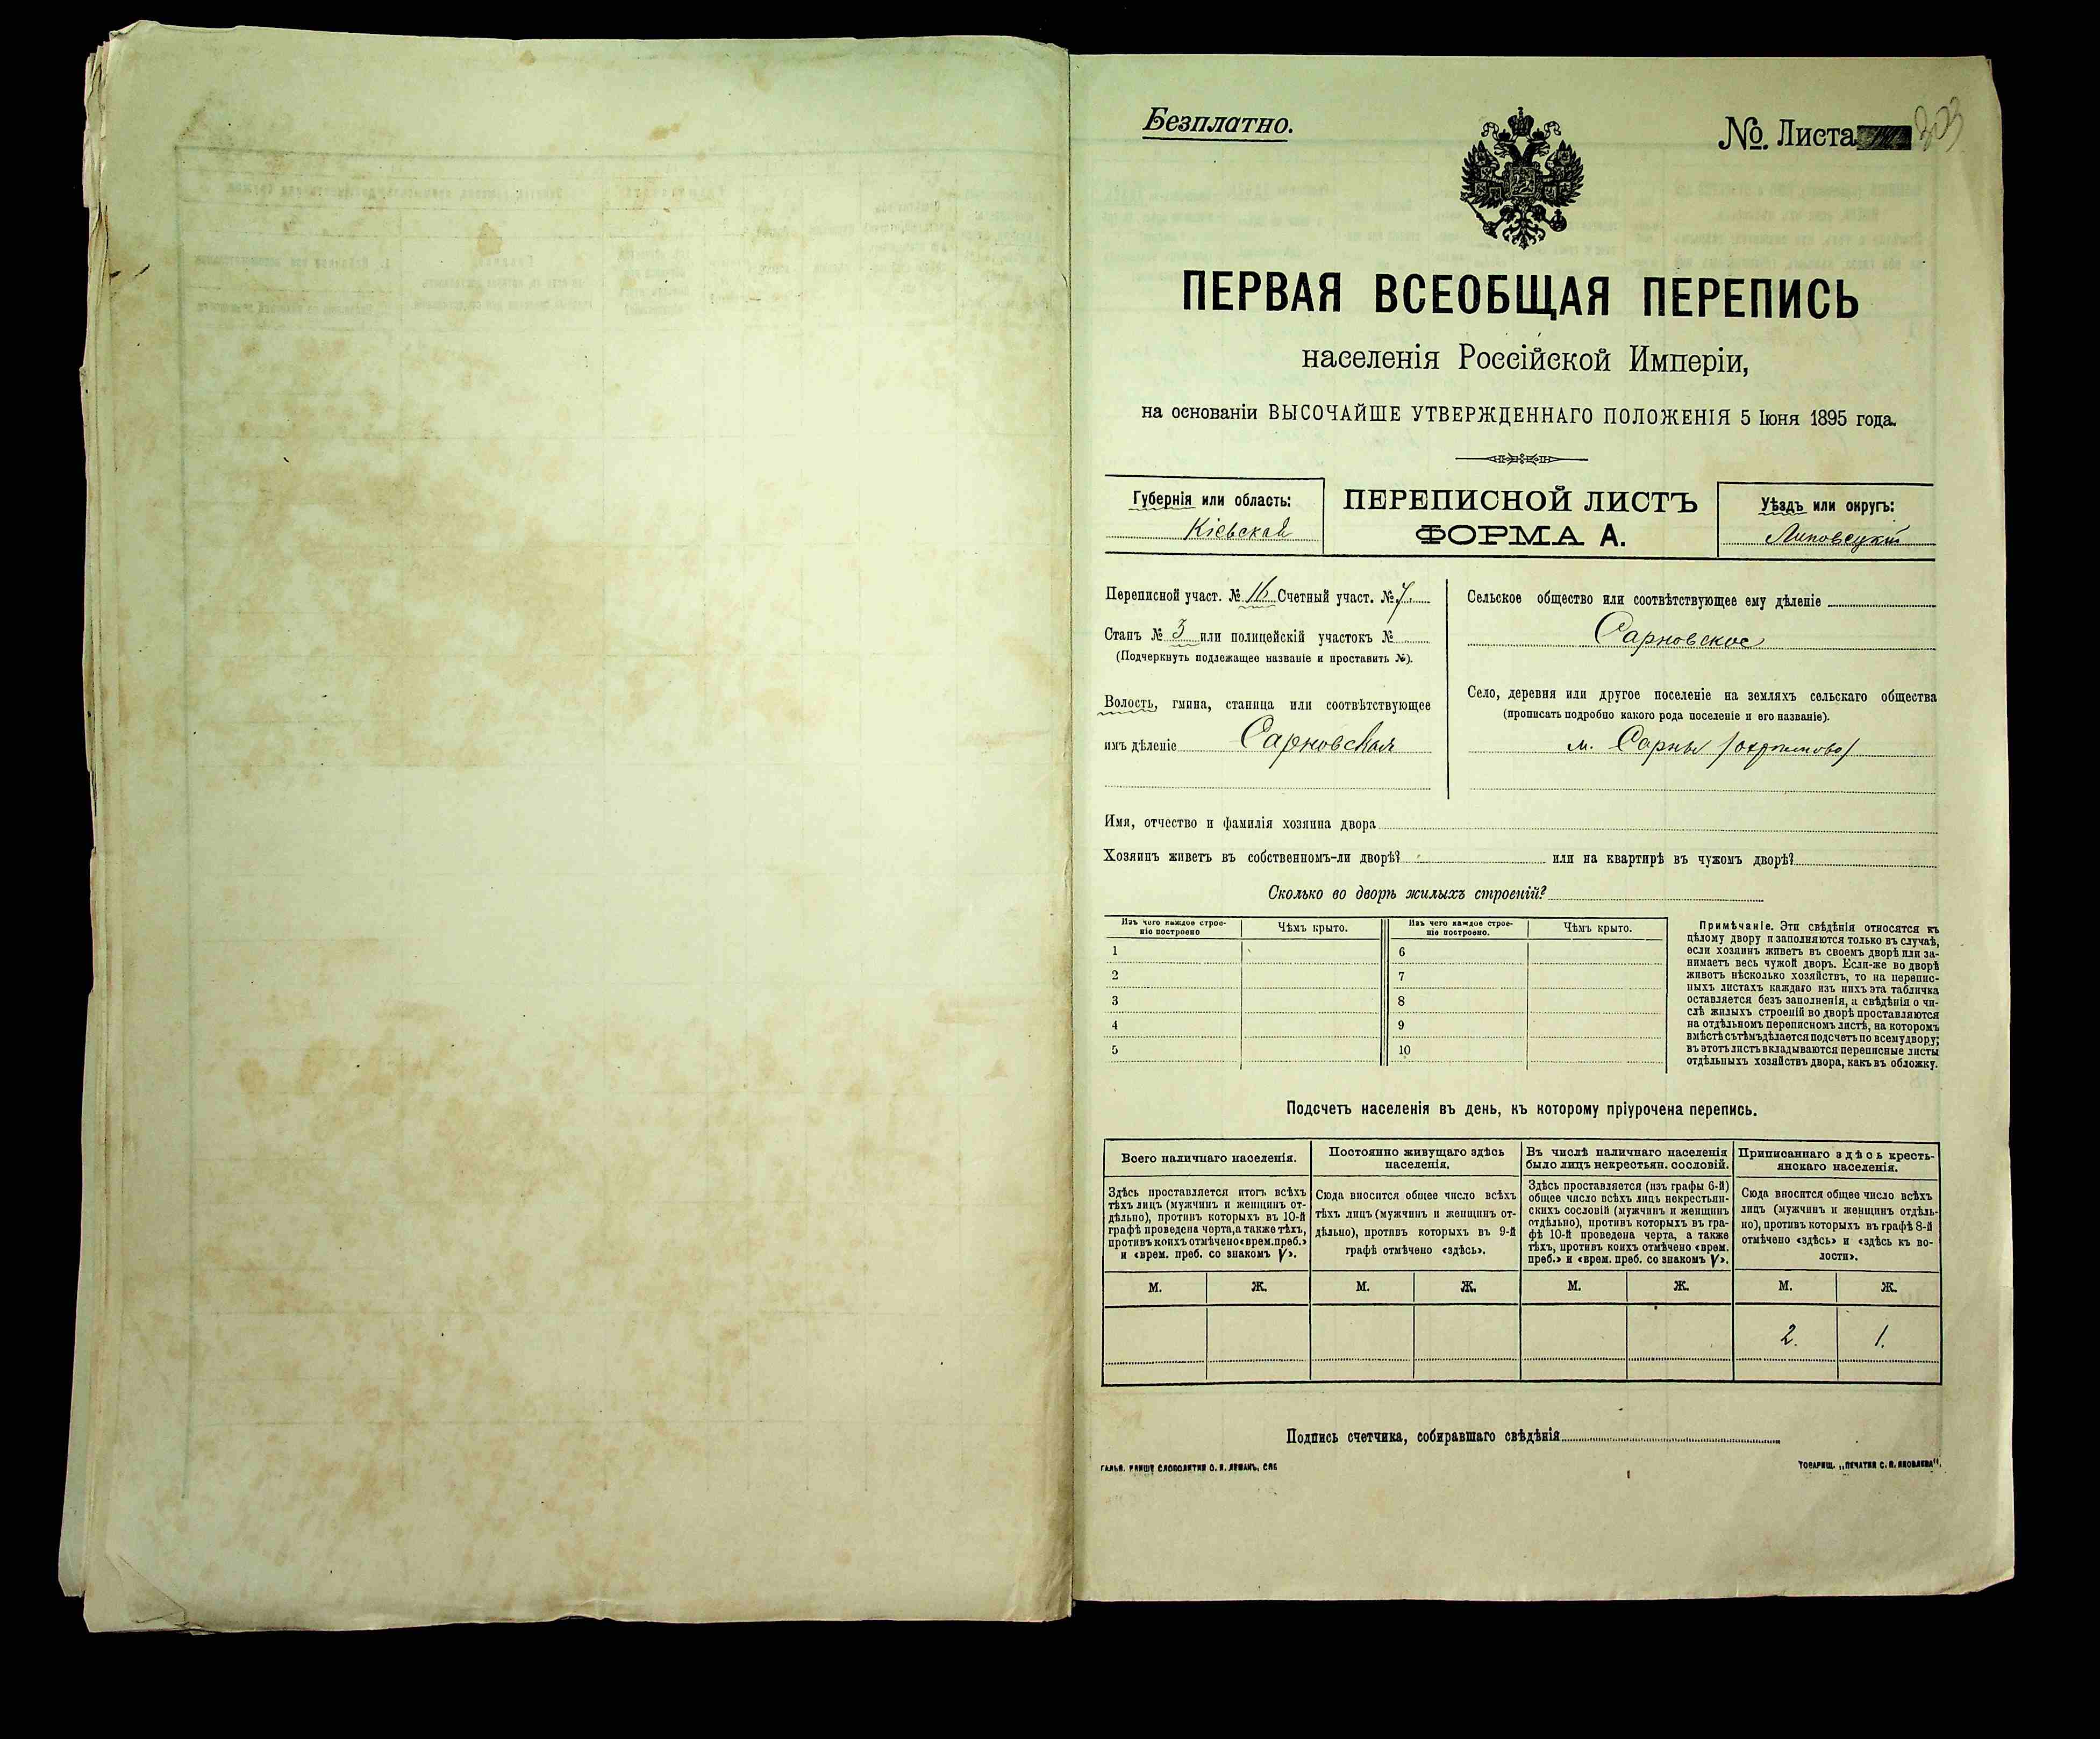 Безплатно.
№. Листа 303
ПЕРВАЯ ВСЕОБЩАЯ ПЕРЕПИСЬ
населенія Россійской Имперіи,
на основаніи ВЫСОЧАЙШЕ УТВЕРЖДЕННАГО ПОЛОЖЕНІЯ 5 Іюня 1895 года.
Губернія или область:
Кіевская
ПЕРЕПИСНОЙ ЛИСТЪ
ФОРМА А.
Уѣздъ или округъ:
Липовецкій
Переписной участ. № 16 Счетный участ. № 7
Станъ № 3 или полицейскій участокъ №
(Подчеркнуть подлежащее названіе и проставить №).
Волость, гмина, станица или соотвѣтствующее
имъ дѣленіе Сарновская
Сельское общество или соотвѣтствующее ему дѣленіе
Сарновское
Село, деревня или другое поселеніе на земляхъ сельскаго общества
(прописать подробно какого рода поселеніе и его названіе).
м. Сарны
Имя, отчество и фамилія хозяина двора
Хозяинъ живетъ въ собственномъ-ли дворѣ? или на квартирѣ въ чужомъ дворѣ?
Сколько во дворѣ жилыхъ строеній?
Изъ чего каждое строе-
ніе построено
Чѣмъ крыто.
Изъ чего каждое строе-
ніе построено.
Чѣмъ крыто.
1 6
2 7
3 8
4 9
5 10
Примѣчаніе. Эти свѣдѣнія относятся къ
цѣлому двору и заполняются только въ случаѣ,
если хозяинъ живетъ въ своемъ дворѣ или за-
нимаетъ весь чужой дворъ. Если-же во дворѣ
живетъ нѣсколько хозяйствъ, то на перепис-
ныхъ листахъ каждаго изъ нихъ эта табличка
оставляется безъ заполненія, а свѣдѣнія о чи-
слѣ жилыхъ строеній во дворѣ проставляются
на отдѣльномъ переписномъ листѣ, на которомъ
вмѣстѣ съ тѣмъ дѣлается подсчетъ по всему двору;
въ этотъ листъ вкладываются переписные листы
отдѣльныхъ хозяйствъ двора, какъ въ обложку.
Подсчетъ населенія въ день, къ которому пріурочена перепись.
Всего наличнаго населенія.
Здѣсь проставляется итогъ всѣхъ
тѣхъ лицъ (мужчинъ и женщинъ от-
дѣльно), противъ которыхъ въ 10-й
графѣ проведена черта, а также тѣхъ,
противъ коихъ отмѣчено «врем. преб.»
и «врем. преб. со знакомъ V».
Постоянно живущаго здѣсь
населенія.
Сюда вносится общее число всѣхъ
тѣхъ лицъ (мужчинъ и женщинъ от-
дѣльно), противъ которыхъ въ 9-й
графѣ отмѣчено «здѣсь».
Въ числѣ наличнаго населенія
было лицъ некрестьян. сословій.
Здѣсь проставляется (изъ графы 6-й)
общее число всѣхъ лицъ некрестьян-
скихъ сословій (мужчинъ и женщинъ
отдѣльно), противъ которыхъ въ гра-
фѣ 10-й проведена черта, а также
тѣхъ, противъ коихъ отмѣчено «врем.
преб.» и «врем. преб. со знакомъ V».
Приписаннаго здѣсь кресть-
янскаго населенія.
Сюда вносится общее число всѣхъ
лицъ (мужчинъ и женщинъ отдѣль-
но), противъ которыхъ въ графѣ 8-й
отмѣчено «здѣсь» и «здѣсь къ во-
лости».
М. Ж. М. Ж. М. Ж. М. Ж.
2. 1.
Подпись счетчика, собиравшаго свѣдѣнія
СЛОВОЛИТНИ О. И. ЛЕМАНЪ, СПБ
ТОВАРИЩ. „ПЕЧАТНЯ С. П. ЯКОВЛЕВА“.